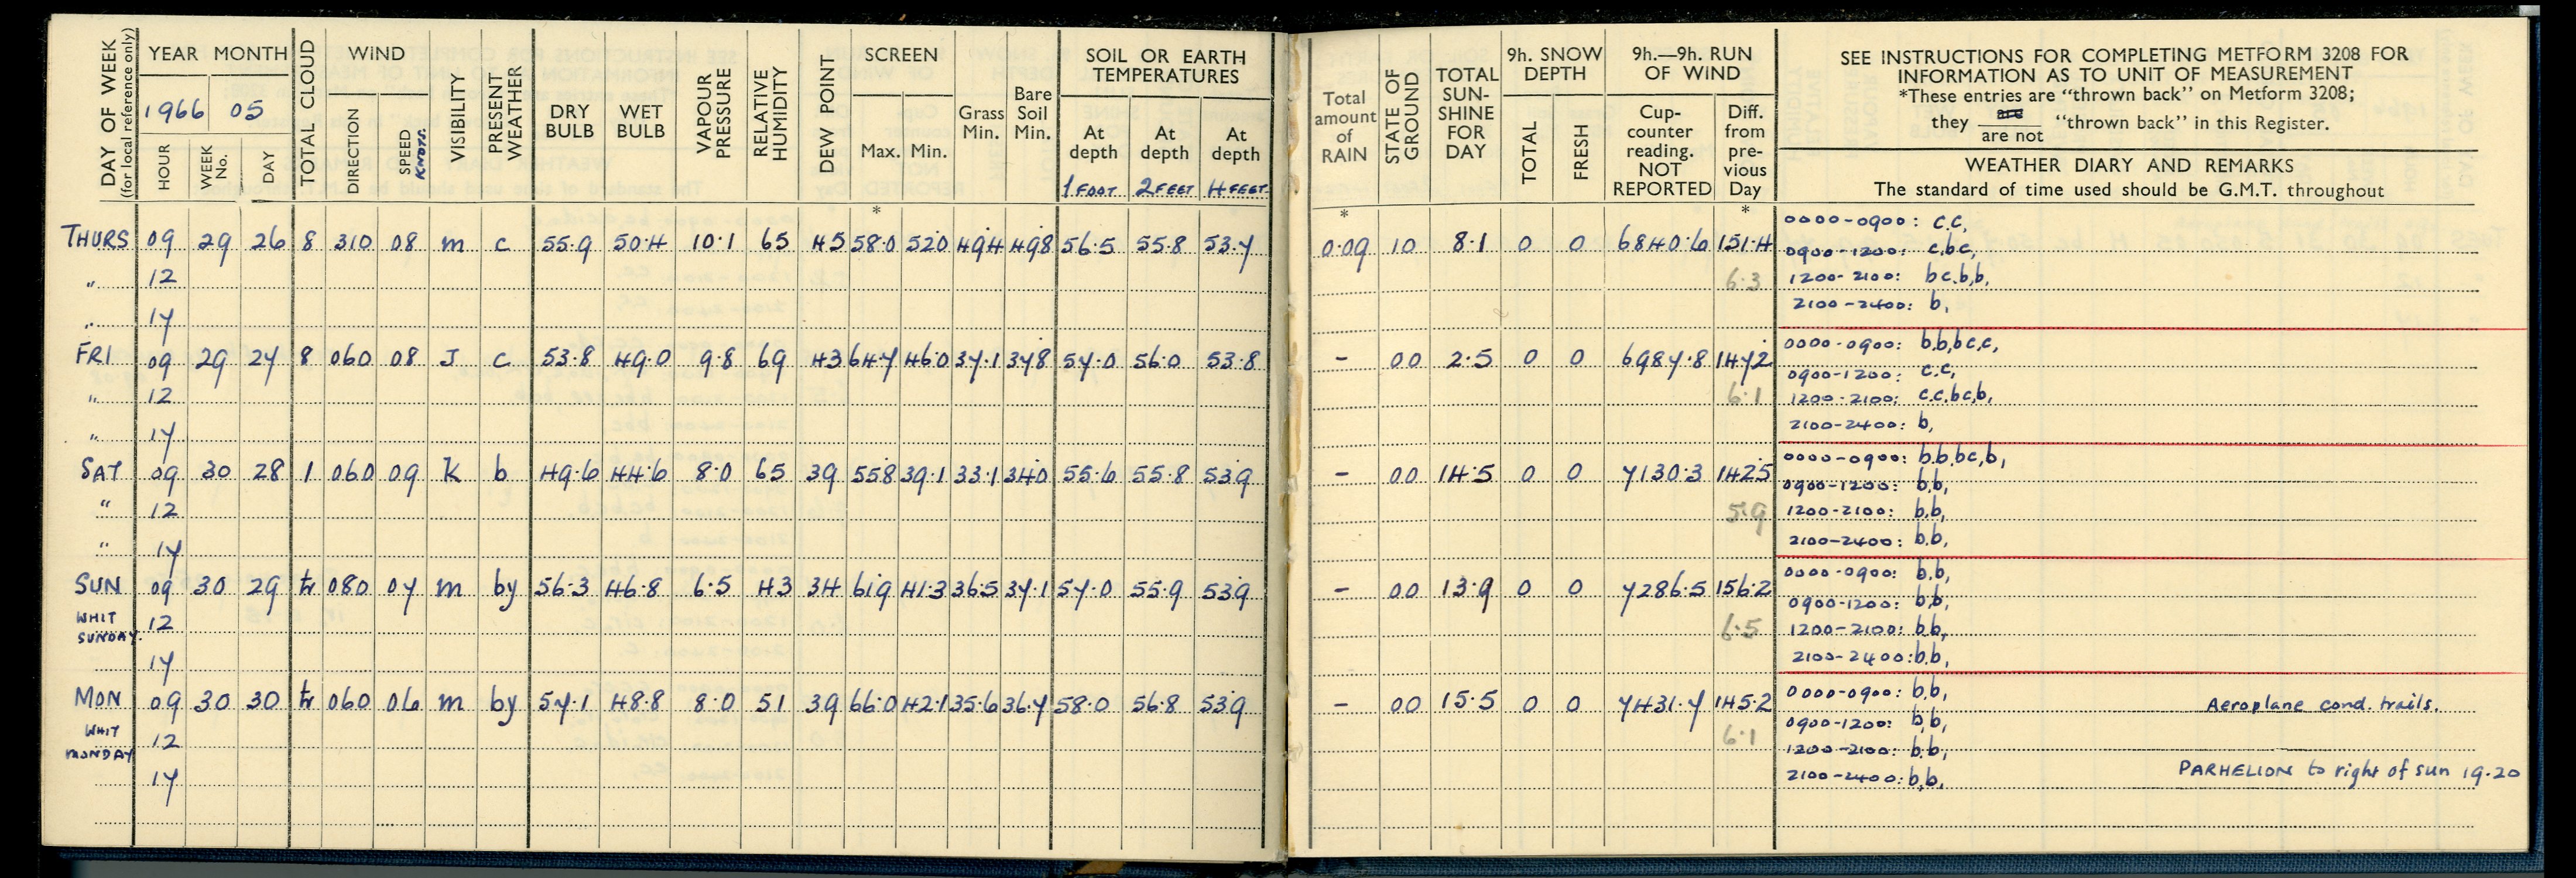 DAY OF WEEK (for local reference only)
YEAR MONTH
1966 05
HOUR WEEK No. DAY
TOTAL CLOUD
WIND
DIRECTION SPEED KNOTS.
VISIBILITY
PRESENT WEATHER
DRY BULB WET BULB
VAPOUR PRESSURE
RELATIVE HUMIDITY
DEW POINT
SCREEN
Max. Min.
Grass Min.
Bare Soil Min.
SOIL OR EARTH TEMPERATURES
At depth At depth At depth
1 FOOT 2 FEET 4 FEET
Total amount of RAIN
STATE OF GROUND
TOTAL SUN-SHINE FOR DAY
9h. SNOW DEPTH
TOTAL FRESH
9h.—9h. RUN OF WIND
Cup-counter reading. NOT REPORTED
Diff. from pre-vious Day
SEE INSTRUCTIONS FOR COMPLETING METFORM 3208 FOR
INFORMATION AS TO UNIT OF MEASUREMENT
*These entries are "thrown back" on Metform 3208;
they are / are not "thrown back" in this Register.
WEATHER DIARY AND REMARKS
The standard of time used should be G.M.T. throughout
* * *
THURS 09 29 26 8 310 08 m c 55.9 50.4 10.1 65 45 58.0 52.0 49.4 49.8 56.5 55.8 53.7 0.09 10 8.1 0 0 6840.6 151.4 0000-0900: c.c,
0900-1200: c,bc,
" 12 6.3 1200-2100: bc.b,b,
2100-2400: b,
" 17
FRI 09 29 27 8 060 08 J c 53.8 49.0 9.8 69 43 64.7 46.0 37.1 37.8 57.0 56.0 53.8 – 00 2.5 0 0 6987.8 147.2 0000-0900: b.b,bc,c,
0900-1200: c.c,
" 12 6.1 1200-2100: c.c.bc,b,
2100-2400: b,
" 17
SAT 09 30 28 1 060 09 K b 49.6 44.6 8.0 65 39 55.8 39.1 33.1 34.0 55.6 55.8 53.9 – 00 14.5 0 0 7130.3 142.5 0000-0900: b.b.bc,b,
0900-1200: b.b,
" 12 5.9 1200-2100: b.b,
" 17 2100-2400: b.b,
SUN 09 30 29 tr 080 07 m by 56.3 46.8 6.5 43 34 61.9 41.3 36.5 37.1 57.0 55.9 53.9 – 00 13.9 0 0 7286.5 156.2 0000-0900: b.b,
0900-1200: b.b,
WHIT SUNDAY. 12 6.5 1200-2100: b.b,
17 2100-2400: b.b,
MON 09 30 30 tr 060 06 m by 57.1 48.8 8.0 51 39 66.0 42.1 35.6 36.7 58.0 56.8 53.9 – 00 15.5 0 0 7431.7 145.2 0000-0900: b.b, Aeroplane cond. trails.
0900-1200: b,b,
WHIT MONDAY 12 6.1 1200-2100: b.b,
17 2100-2400: b,b, PARHELION to right of sun 19.20